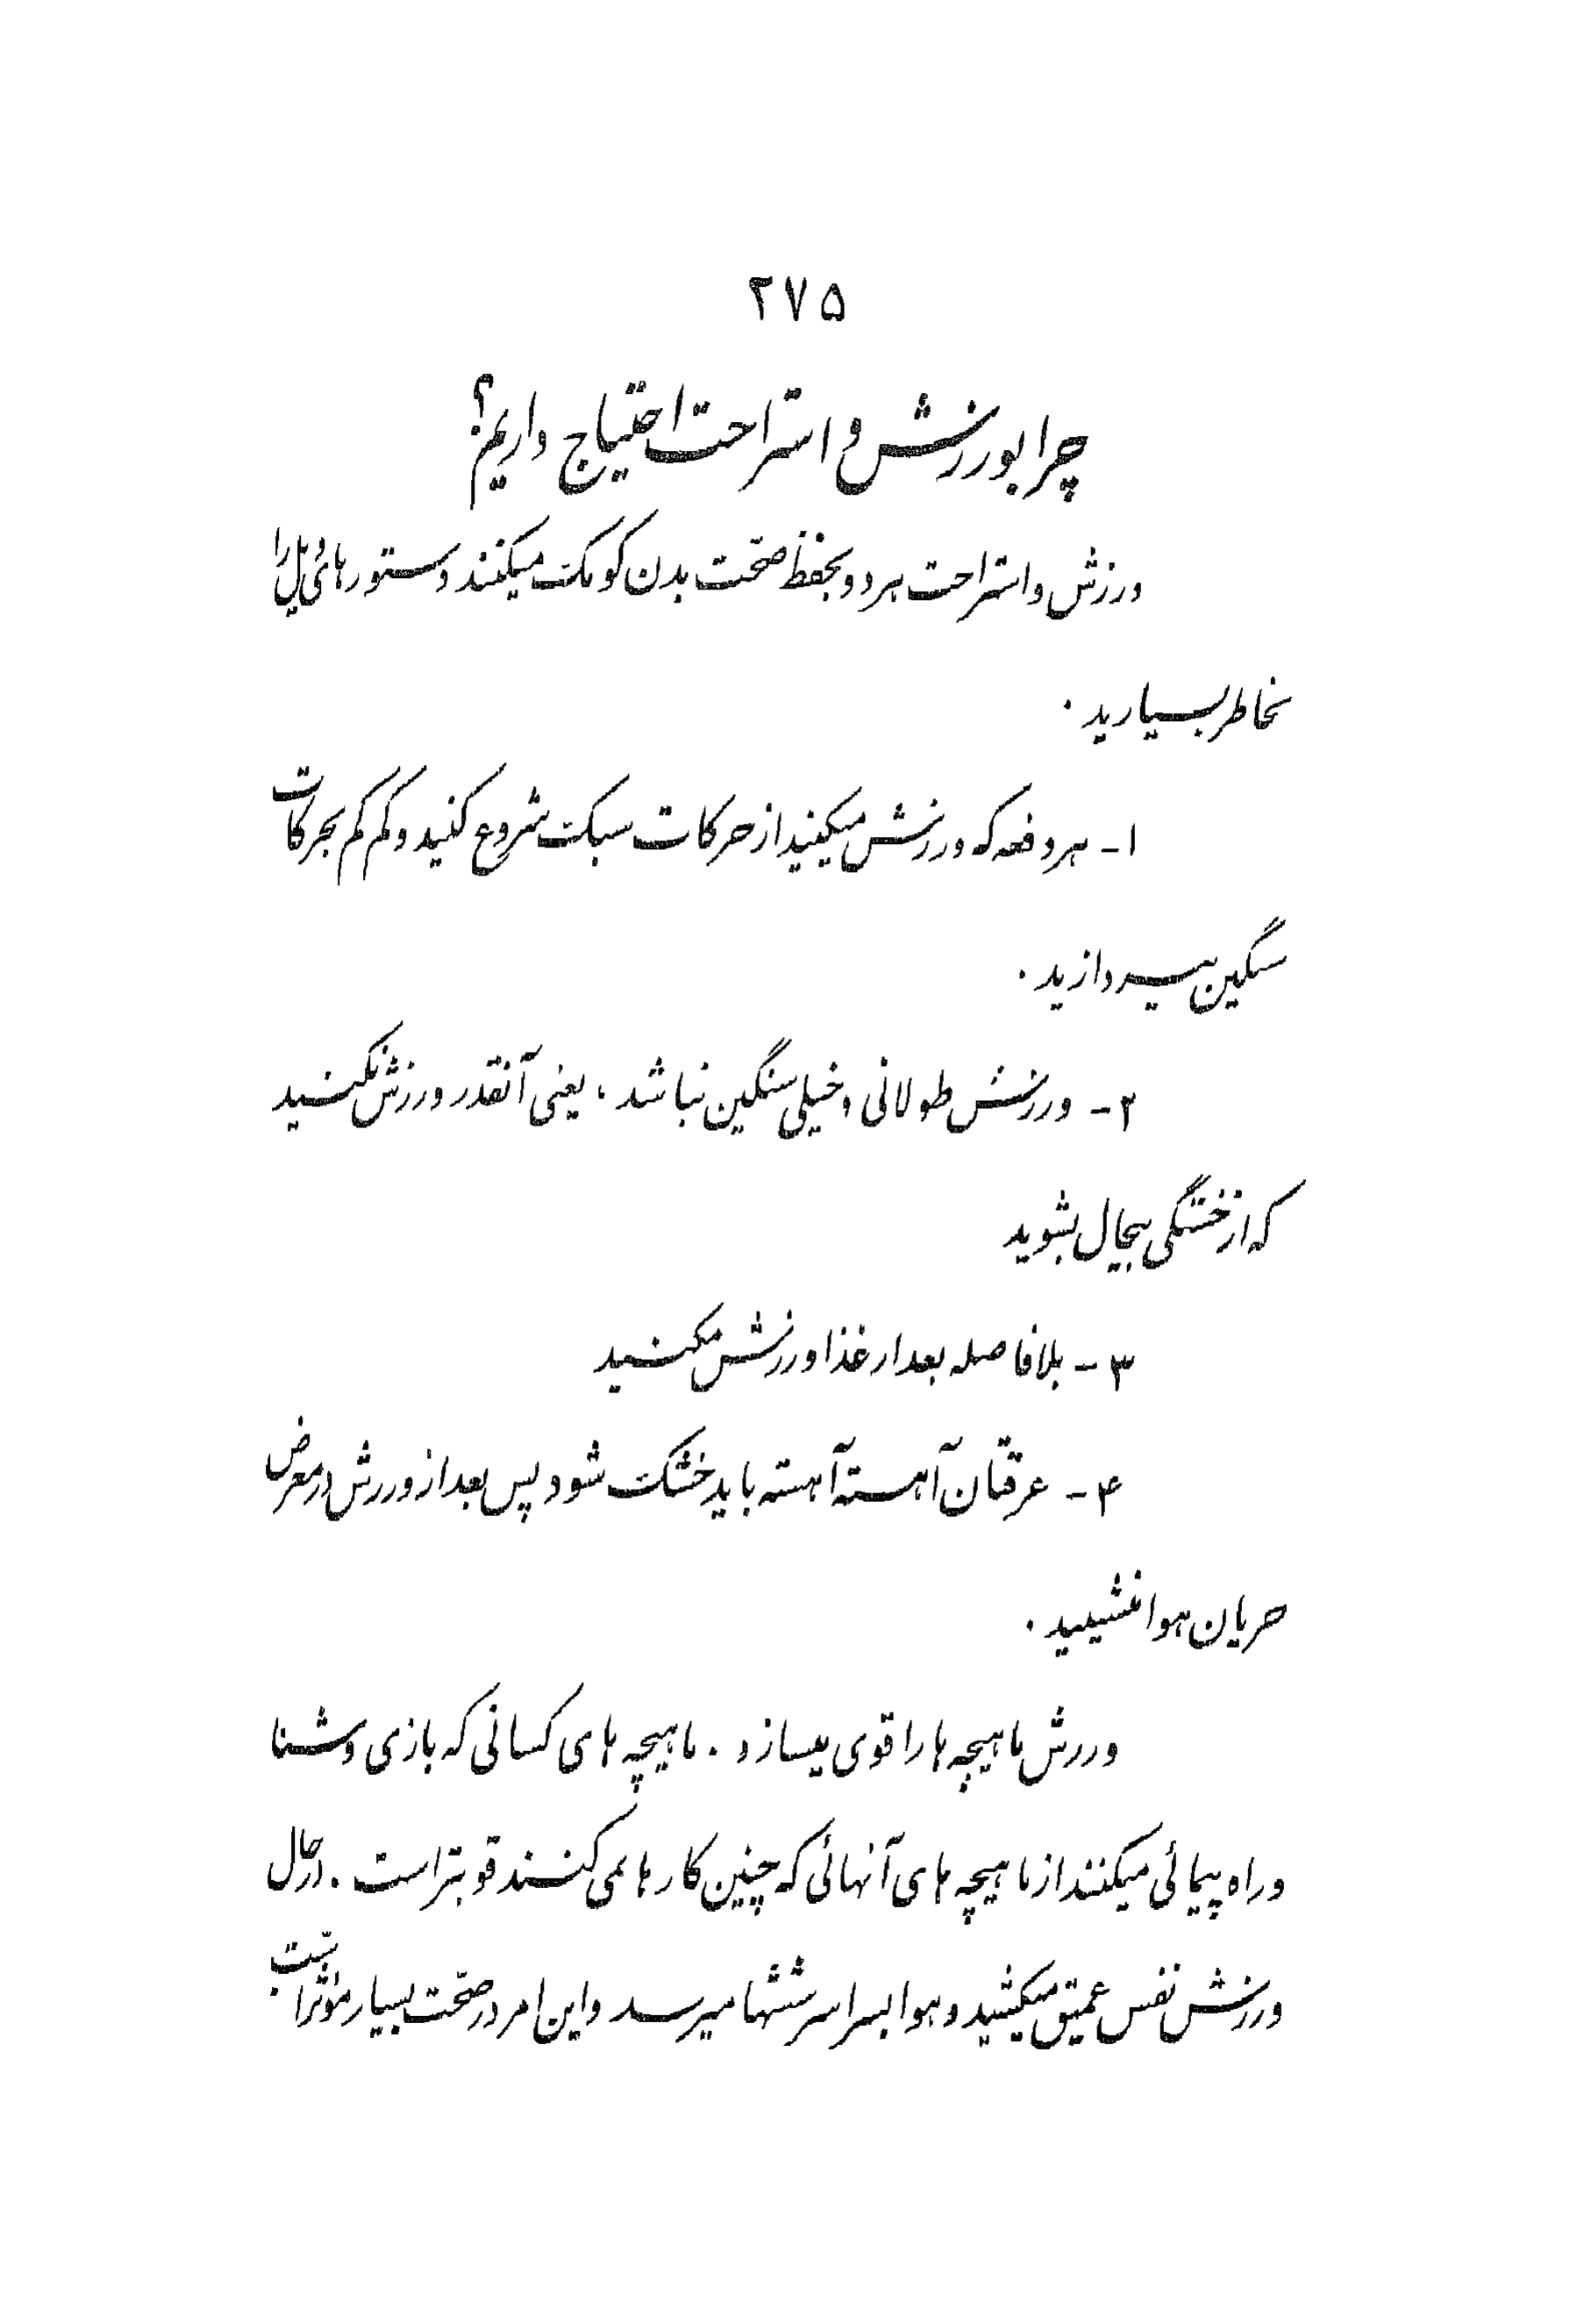 ۲۷۵
چرا بورزش و استراحت احتیاج داریم؟
ورزش و استراحت هر دو بحفظ صحّت بدن کومک میکنند دستورهای ذیل را
بخاطر بسپارید .
۱- هر دفعه که ورزش میکنید از حرکات سبک شروع کنید و کم کم بحرکات
سنگین بپردازید .
۲- ورزش طولانی و خیلی سنگین نباشد ، یعنی آنقدر ورزش نکنید
که از خستگی بیحال بشوید
۳- بلافاصله بعد از غذا ورزش مکنید
۴- عرقتان آهسته آهسته باید خشک شود پس بعد از ورزش در معرض
جریان هوا ننشینید .
ورزش ماهیچه ها را قوی میسازد . ماهیچه های کسانی که بازی و شنا
و راه پیمائی میکنند از ماهیچه های آنهائی که چنین کارها نمی کنند قویتر است . در حال
ورزش نفس عمیق میکشید و هوا بسراسر ششها میرسد و این امر در صحّت بسیار مؤثر است